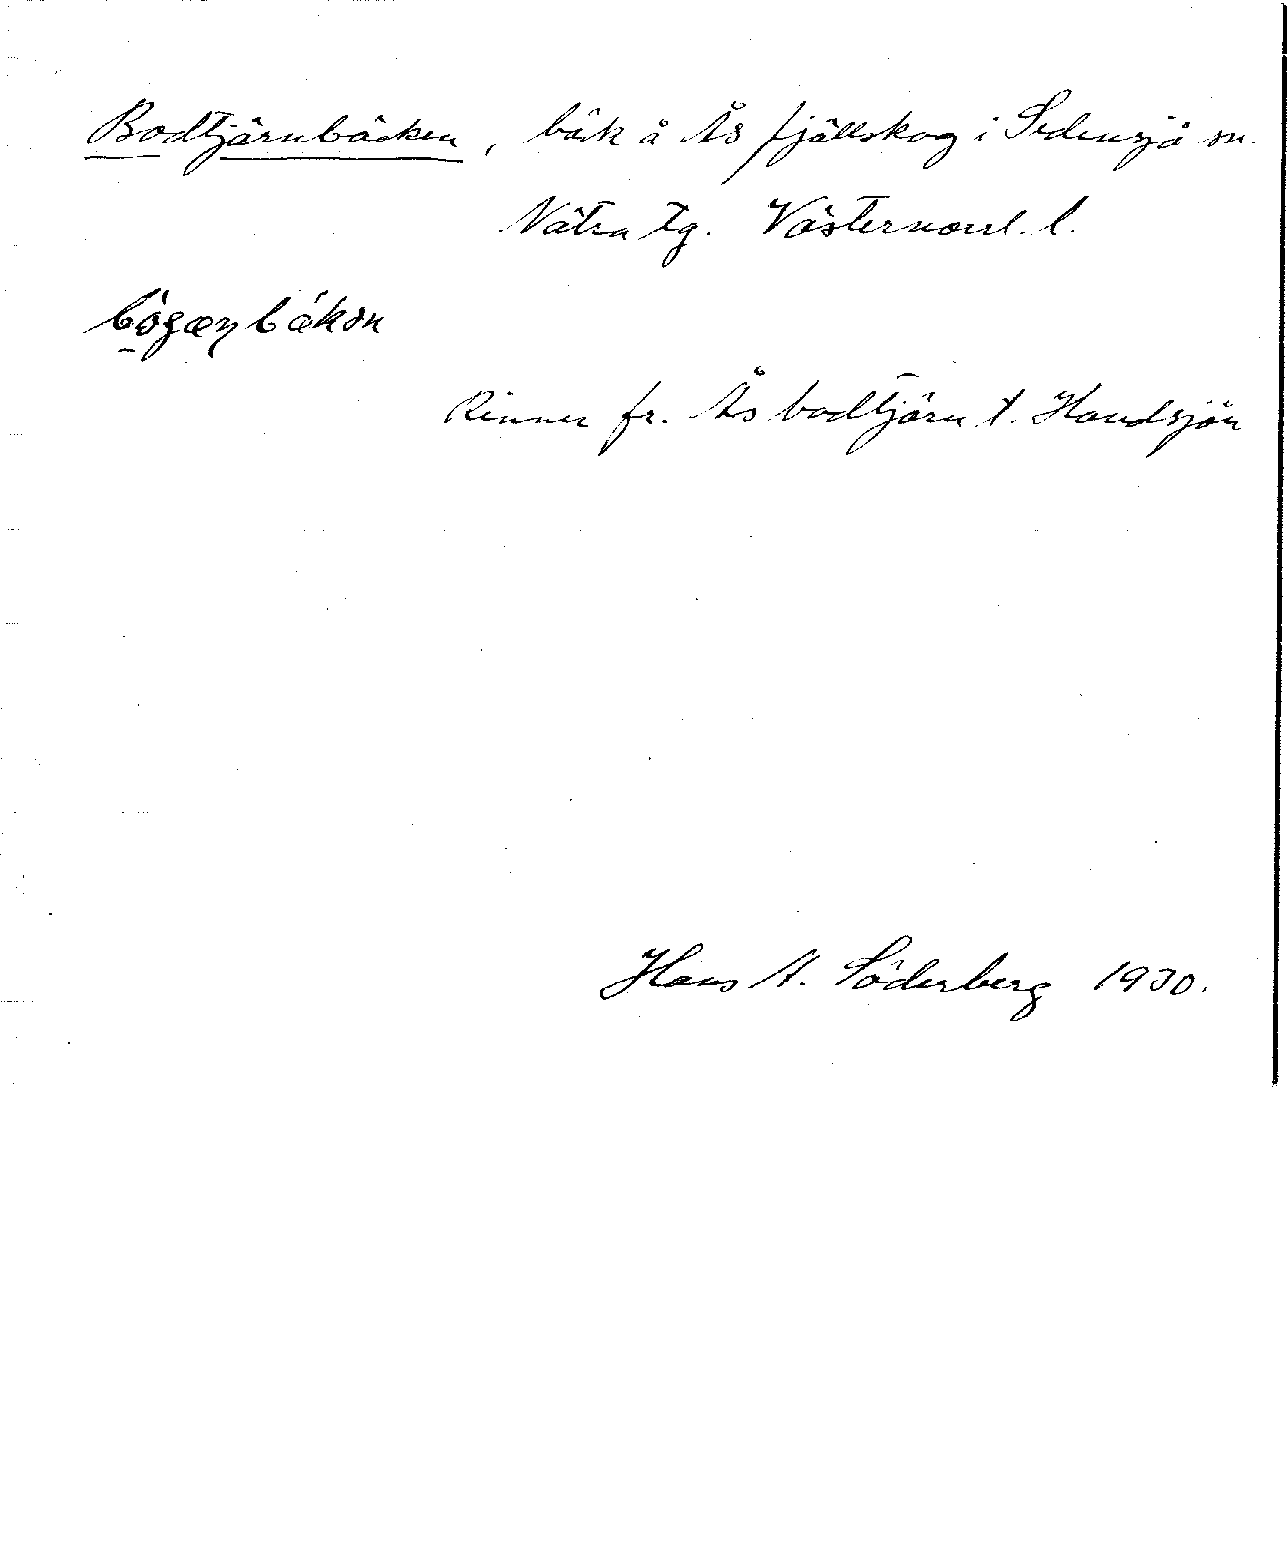 Bodtjärnbäcken, bäk å Ås fjällskog i Sidensjö sn.
Nätra tg. Västernorrl. l.
Rinner fr. Ås bodtjärn t. Handsjön
Hans A. Söderberg 1930.